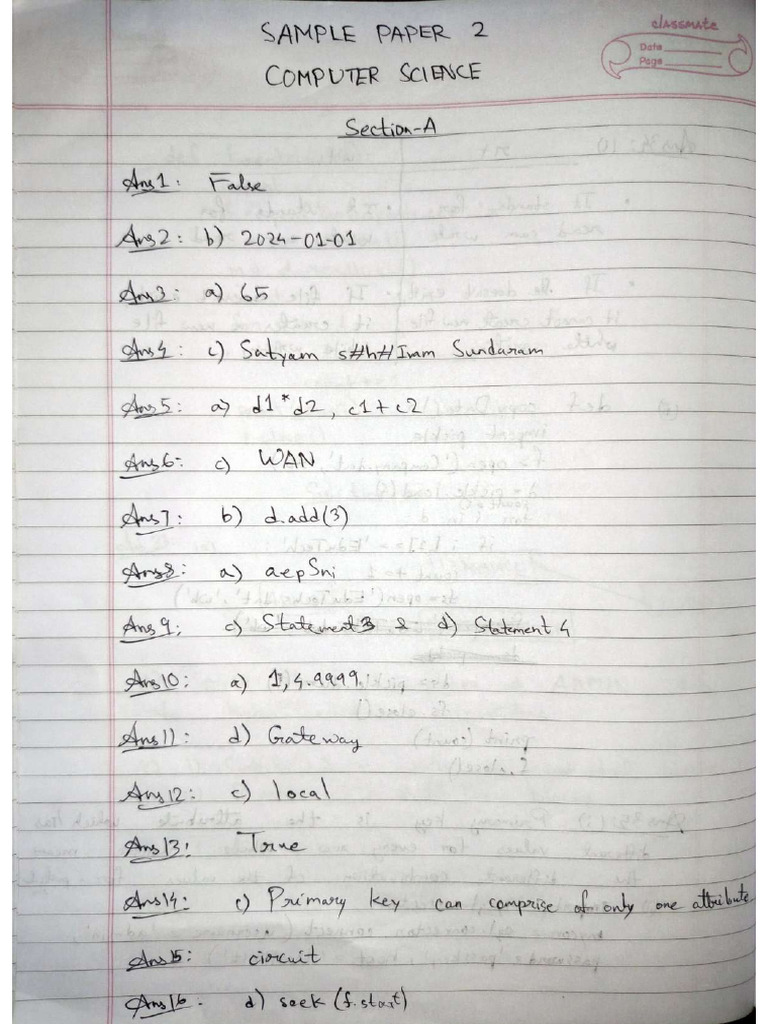 SAMPLE PAPER 2
classmate
Date
Page
COMPUTER SCIENCE
Section-A
Ans1: False
Ans2: b) 2024-01-01
Ans3: a) 65
Ans4: c) Satyam s#h#Ivam Sundaram
Ans5: a) d1*d2, c1+c2
Ans6: c) WAN
Ans7: b) d.add(3)
Ans8: a) aepSni
Ans9: c) Statement3 & d) Statement 4
Ans10: a) 1,4.9999
Ans11: d) Gateway
Ans12: c) local
Ans13: True
Ans14: c) Primary key can comprise of only one attribute
Ans15: circuit
Ans16. d) seek (f.start)